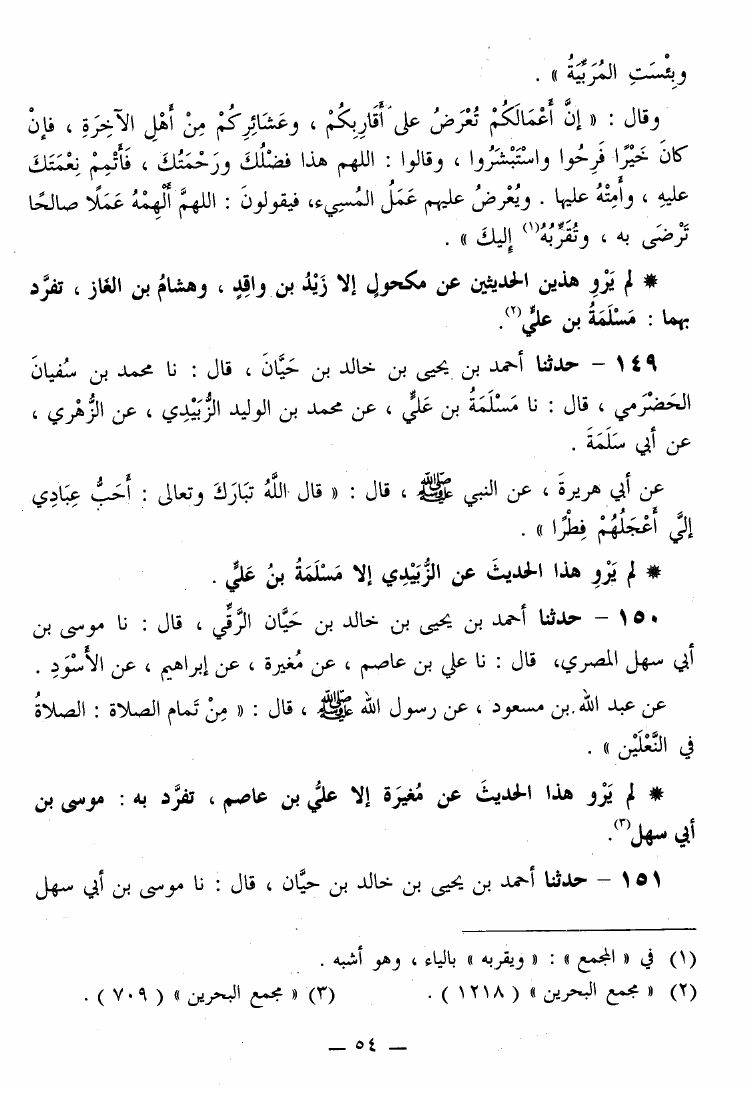 وبِئْسَتِ المُرَبِّيَةُ » .
وقال : « إنَّ أَعْمَالَكُمْ تُعْرَضُ على أَقَارِبِكُمْ ، وعَشَائِرِكُمْ مِنْ أَهْلِ الآخِرَةِ ، فإنْ
كانَ خَيْرًا فَرِحُوا واسْتَبْشَرُوا ، وقالوا : اللهم هذا فضْلُكَ ورَحْمَتُكَ ، فَأَتْمِمْ نِعْمَتَكَ
عليهِ ، وأَمِتْهُ عليها . ويُعْرَضُ عليهم عَمَلُ المُسِيءِ، فيقولونَ : اللهمَّ أَلْهِمْهُ عَمَلًا صالحًا
تَرْضَى به ، وتُقَرِّبُهُ(١) إليكَ » .
* لم يَرْوِ هذين الحديثين عن مكحولٍ إلا زَيْدُ بن واقِدٍ ، وهشامُ بن الغَاز ، تفرَّد
بهما : مَسْلَمَةُ بن عليٍّ(٢).
١٤٩ – حدثنا أحمد بن يحيى بن خالد بن حَيَّانَ ، قال : نا محمد بن سُفيانَ
الحَضْرَمي ، قال : نا مَسْلَمَةُ بن عَليٍّ ، عن محمد بن الوليد الزُّبَيْدِي ، عن الزُّهْري ،
عن أبي سَلَمَةَ .
عن أبي هريرةَ ، عن النبي ﷺ ، قال : « قال اللَّهُ تبَارَكَ وتعالى : أَحَبُّ عِبَادِي
إليَّ أَعْجَلُهُمْ فِطْرًا » .
* لم يَرْوِ هذا الحديثَ عن الزُّبَيْدِي إلا مَسْلَمَةُ بنُ عَليٍّ .
١٥٠ – حدثنا أحمد بن يحيى بن خالد بن حَيَّان الرَّقِّي ، قال : نا موسى بن
أبي سهل المصري، قال : نا علي بن عاصم ، عن مُغيرة ، عن إبراهيم ، عن الأَسْوَدِ .
عن عبد الله بن مسعود ، عن رسول الله ﷺ ، قال : « مِنْ تَمام الصلاة : الصلاةُ
في النَّعْلَيْن » .
* لم يَرْوِ هذا الحديثَ عن مُغيَرَة إلا عليُّ بن عاصم ، تفرَّد به : موسى بن
أبي سهل(٣).
١٥١ – حدثنا أحمد بن يحيى بن خالد بن حيَّان ، قال : نا موسى بن أبي سهل
(١) في « المجمع » : « ويقربه » بالياء ، وهو أشبه .
(٢) « مجمع البحرين » ( ١٢١٨ ) . (٣) « مجمع البحرين » ( ٧٠٩ ) .
– ٥٤ –